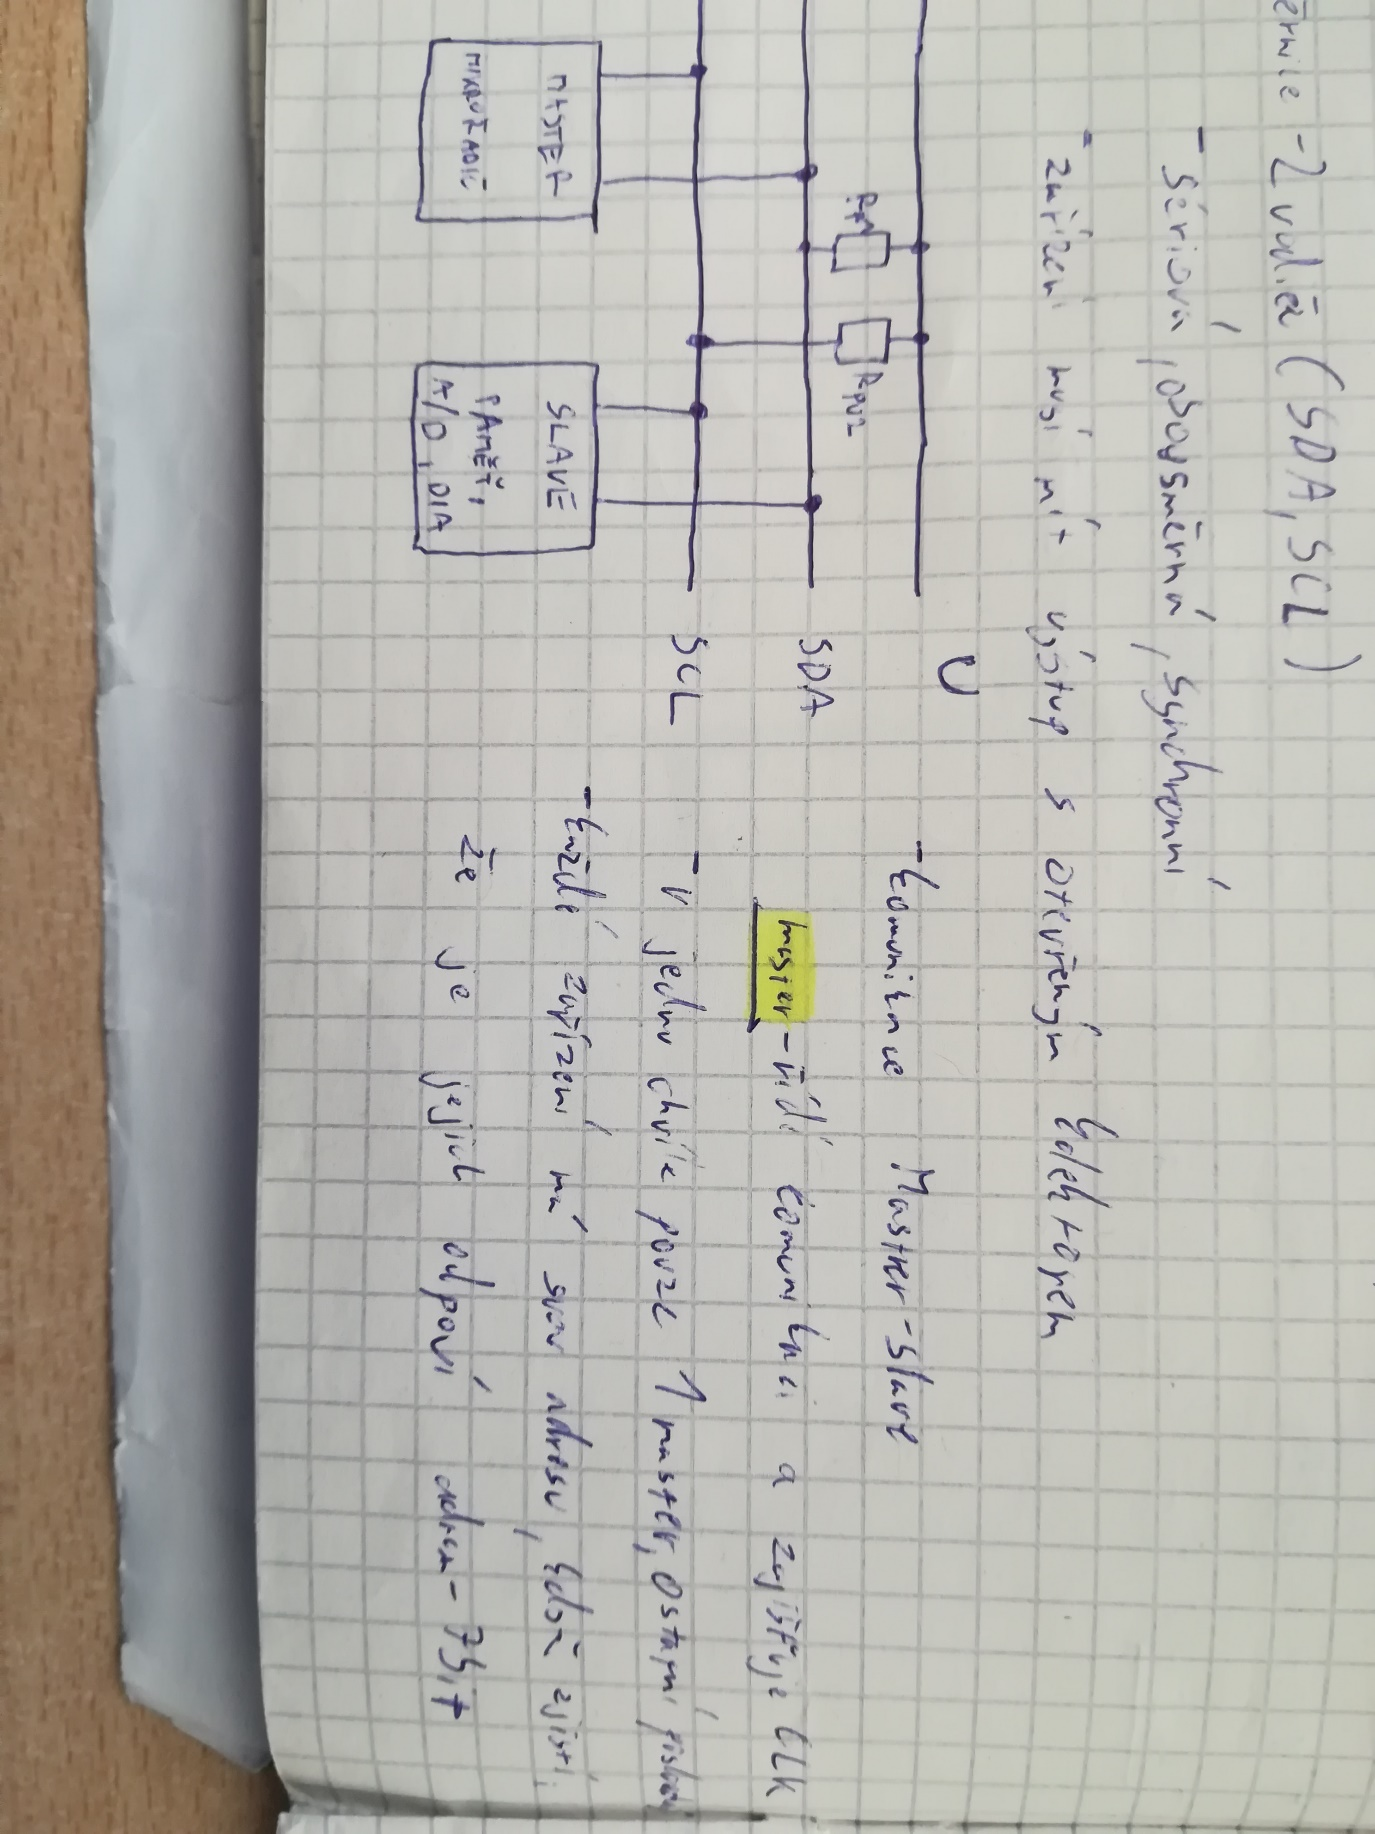 ěrnice - 2 vodiče (SDA, SCL)
- sériová, obousměrná, synchronní
- zařízení musí mít výstup s otevřeným kolektorem
U
SDA
SCL
RPU2
MASTER
MIKROŘADIČ
SLAVE
PAMĚŤ,
A/D, D/A
- komunikace Master-Slave
master - řídí komunikaci a zajišťuje CLK
- v jednu chvíli pouze 1 master, ostatní
- každé zařízení má svou adresu, když zjistí,
že je jejich odpoví adresa - 7bit